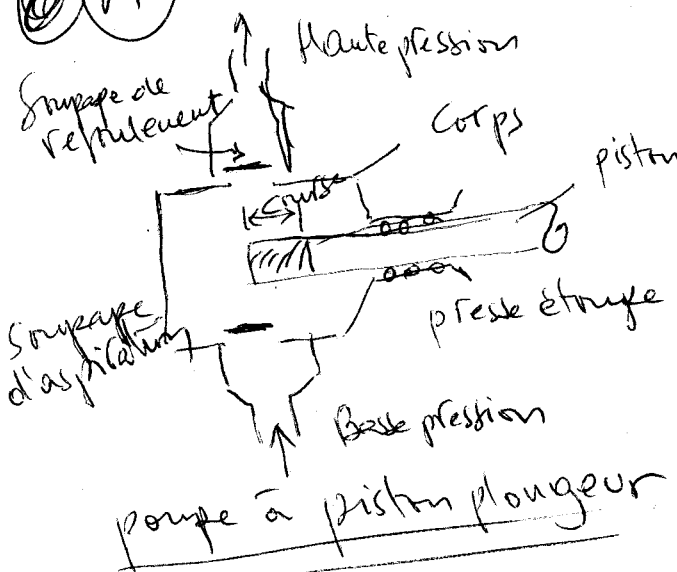 Haute pression
Soupape de
refoulement
Corps
piston
course
presse étoupe
Soupape
d'aspiration
Basse pression
pompe à piston plongeur